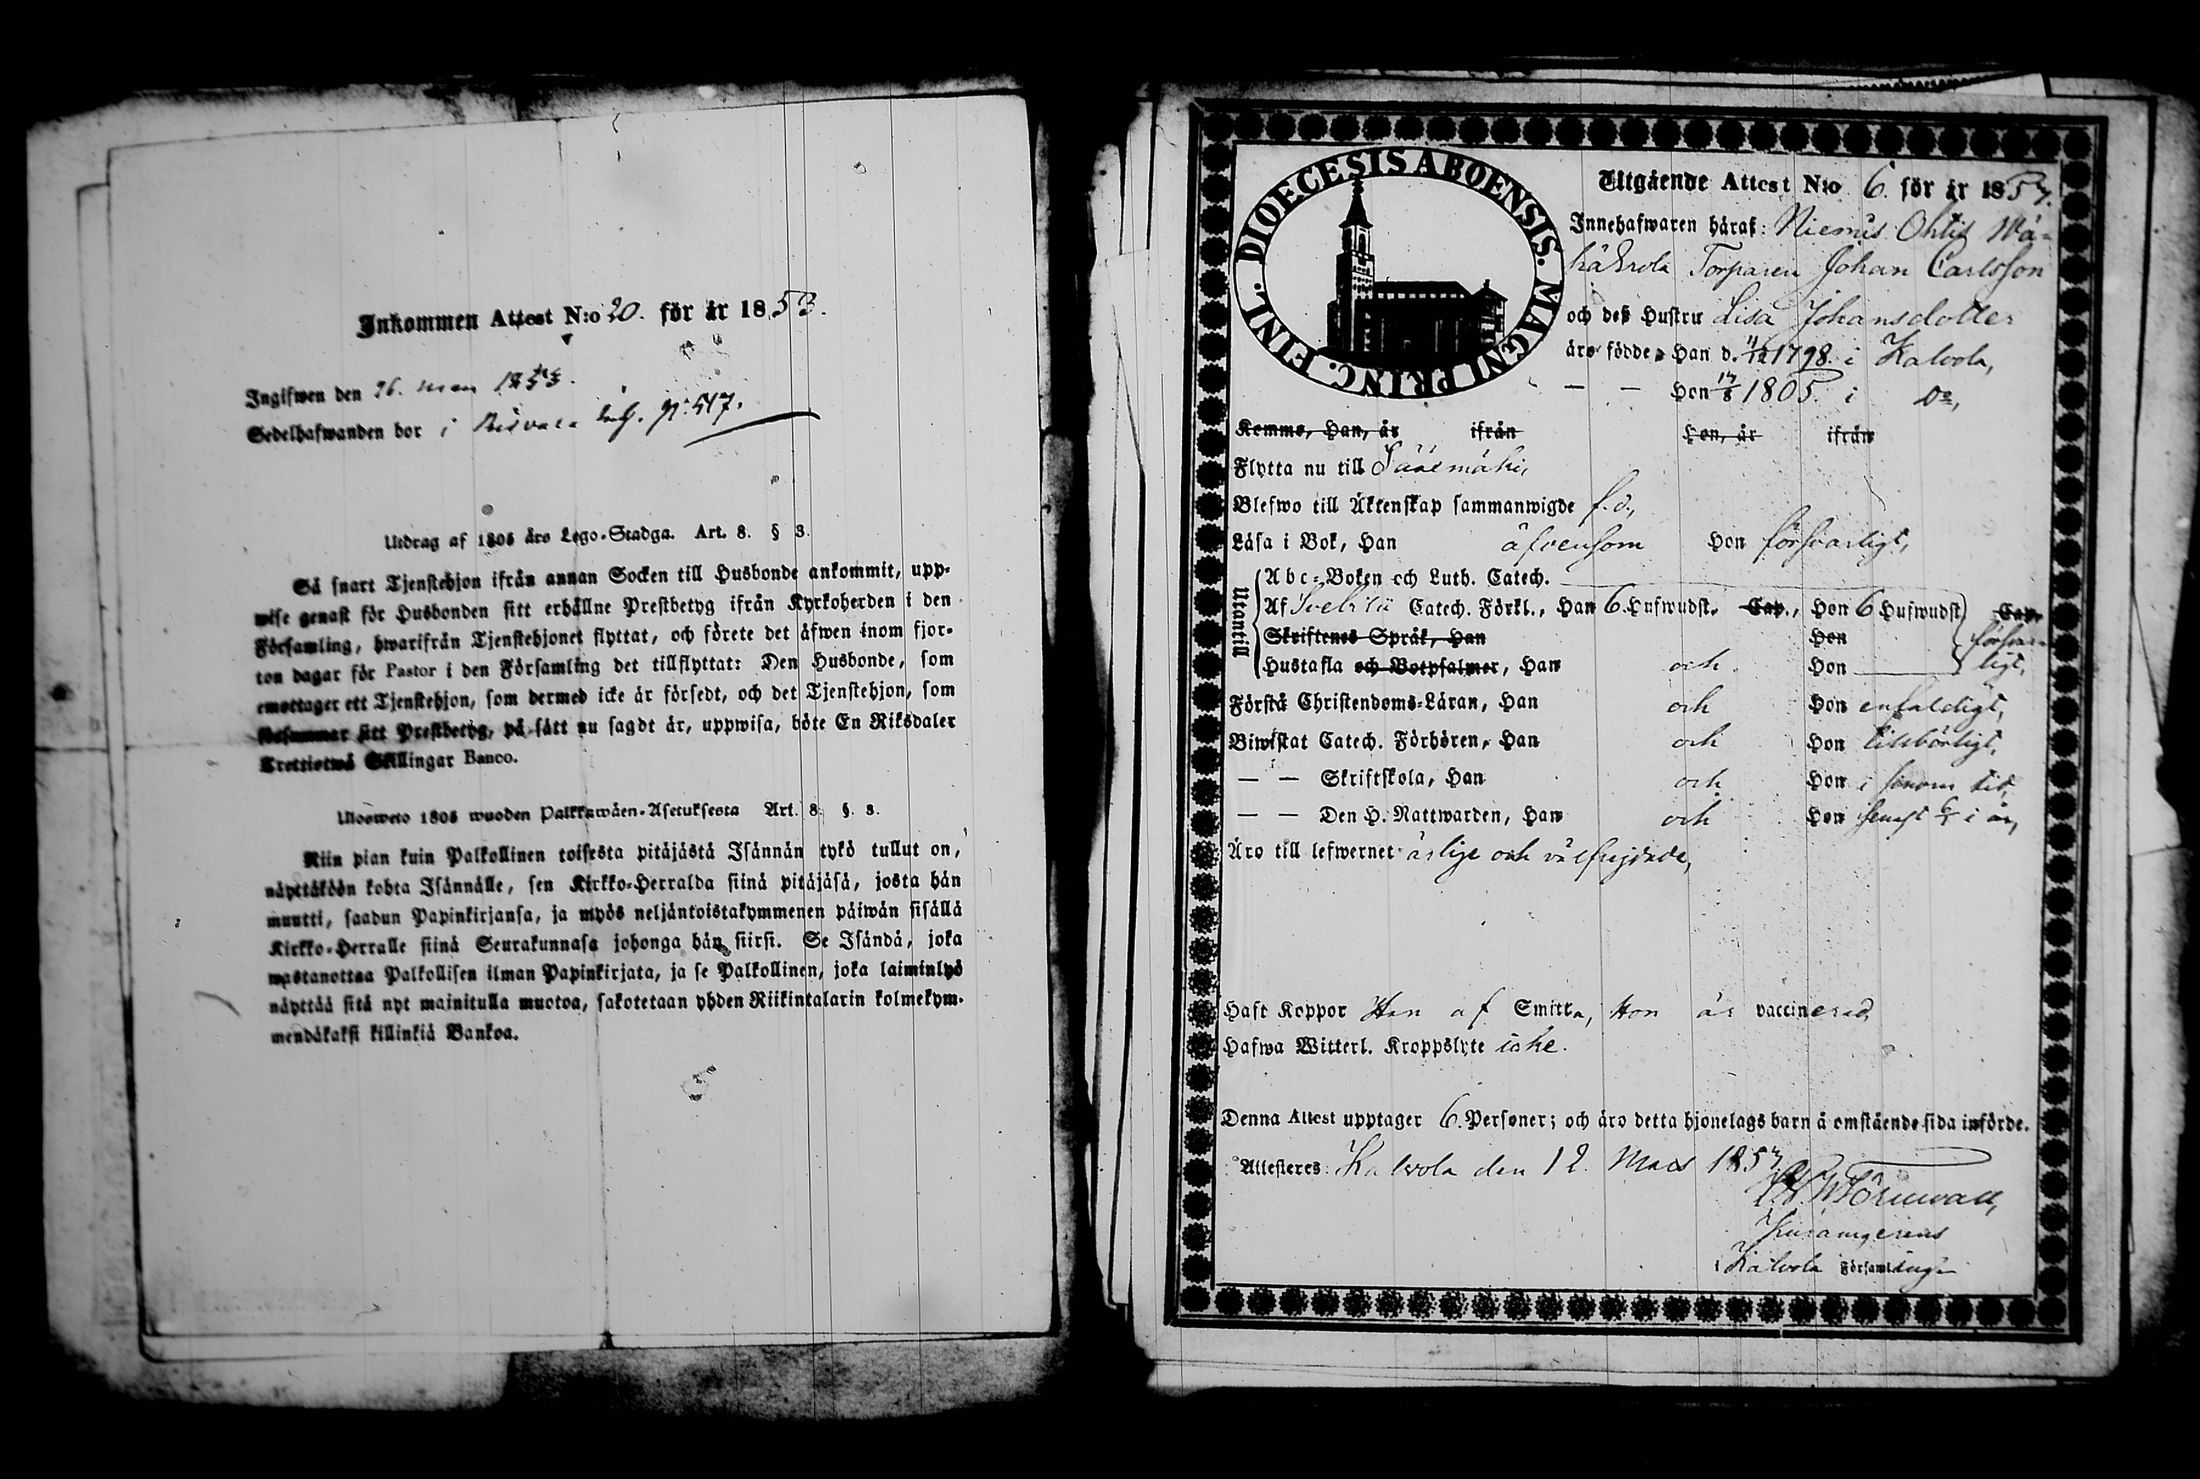 Inkommen Attest N:o 20. för år 1853.
Ingifwen den 26. mars 1853.
Sedelhafwanden bor i N:o 517.
Utdrag af 1805 års Lego-Stadga. Art. 8. § 3.
Så snart Tjenstehjon ifrån annan Socken till Husbonde ankommit, upp-
wise genast för Husbonden sitt erhållne Prestbetyg ifrån Kyrkoherden i den
Församling, hwarifrån Tjenstehjonet flyttat, och förete det äfwen inom fjor-
ton dagar för Pastor i den Församling det tillflyttat: Den Husbonde, som
emottager ett Tjenstehjon, som dermed icke är försedt, och det Tjenstehjon, som
försummar sitt Prestbetyg, på sätt nu sagdt är, uppwisa, böte En Riksdaler
Trettiotwå Skillingar Banco.
Ulosweto 1805 wuoden Palkkawäen-Asetuksesta Art. 8. §. 3.
Niin pian kuin Palkollinen toisesta pitäjästä Isännän tykö tullut on,
näyttäköön kohta Isännälle, sen Kirkko-Herralda siinä pitäjäsä, josta hän
muutti, saadun Papinkirjansa, ja myös neljäntoistakymmenen päiwän sisällä
Kirkko-Herralle siinä Seurakunnasa johonga hän siirsi. Se Isändä, joka
wastanottaa Palkollisen ilman Papinkirjata, ja se Palkollinen, joka laiminlyö
näyttää sitä nyt mainitulla muotoa, sakotetaan yhden Riikintalarin kolmekym-
mendäkaksi killinkiä Bankoa.
DIOECESIS ABOENSIS. MAGNI PRINC. FINL.
Utgående Attest N:o 6. för år 1853.
Innehafwaren häraf: Niemis Ohlis Wä-
häkrola Torparen Johan Carlsson
och deß Hustru Lisa Johansdotter
äro födde, Han d. 11/12 1798 i Kalvola,
— — Hon 17/8 1805 i Do,
Kommo, Han, år ifrån Hon, år ifrån
Flytta nu till Jääsmäki,
Blefwo till Äktenskap sammanwigde f. d.,
Läsa i Bok, Han äfvensom Hon försvarligt,
Utantill
Abc-Boken och Luth. Catech.
Af Svebilii Catech. Förkl., Han 6. Hufwudst. Cap., Hon 6 Hufwudst Cap.
Skriftenes Språk, Han Hon försvar-
Hustafla och Botpsalmer, Han och Hon ligt,
Förstå Christendoms-Läran, Han och Hon enfaldigt,
Biwistat Catech. Förhören, Han och Hon tillbörligt,
— — Skriftskola, Han och Hon i sinom tid,
— — Den H. Nattwarden, Han och Hon senast i år,
Äro till lefwernet ärlige och välfrejdade,
Haft Koppor Han af Smitta, Hon är vaccinerad,
Hafwa Witterl. Kroppslyte icke.
Denna Attest upptager 6. Personer; och äro detta hjonelags barn å omstående sida införde.
Attesteres: Kalvola den 12. Mars 1853
Törnwall,
Kalvola Församling